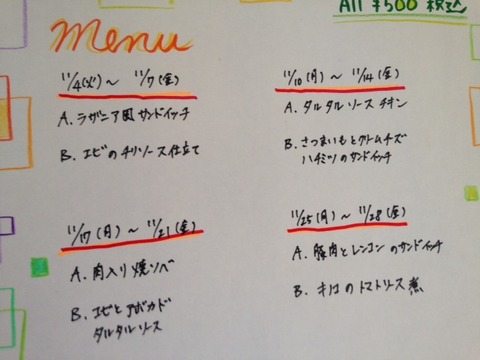 All ¥500 税込
Menu
11/4(火) ~ 11/7(金)
A. ラザニア風サンドイッチ
B. エビのチリソース仕立て
11/10(月) ~ 11/14(金)
A. タルタルソースチキン
B. さつまいもとクリームチーズ
ハチミツのサンドイッチ
11/17(月) ~ 11/21(金)
A. 肉入り焼ソバ
B. エビとアボカド
タルタルソース
11/25(月) ~ 11/28(金)
A. 豚肉とレンコンのサンドイッチ
B. キノコのトマトソース煮